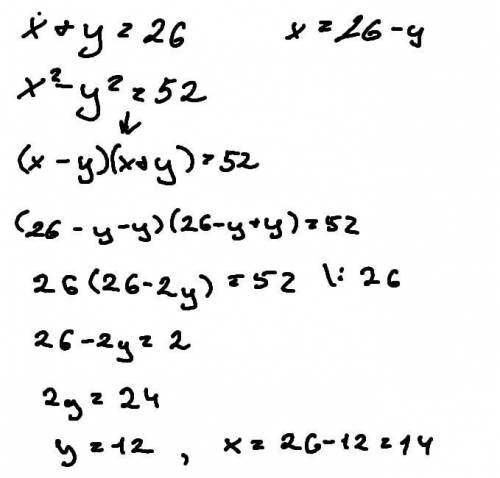 x + y = 26    x = 26 - y
x² - y² = 52
↓
(x - y)(x + y) = 52
(26 - y - y)(26 - y + y) = 52
26(26 - 2y) = 52 \: 26
26 - 2y = 2
2y = 24
y = 12 , x = 26 - 12 = 14